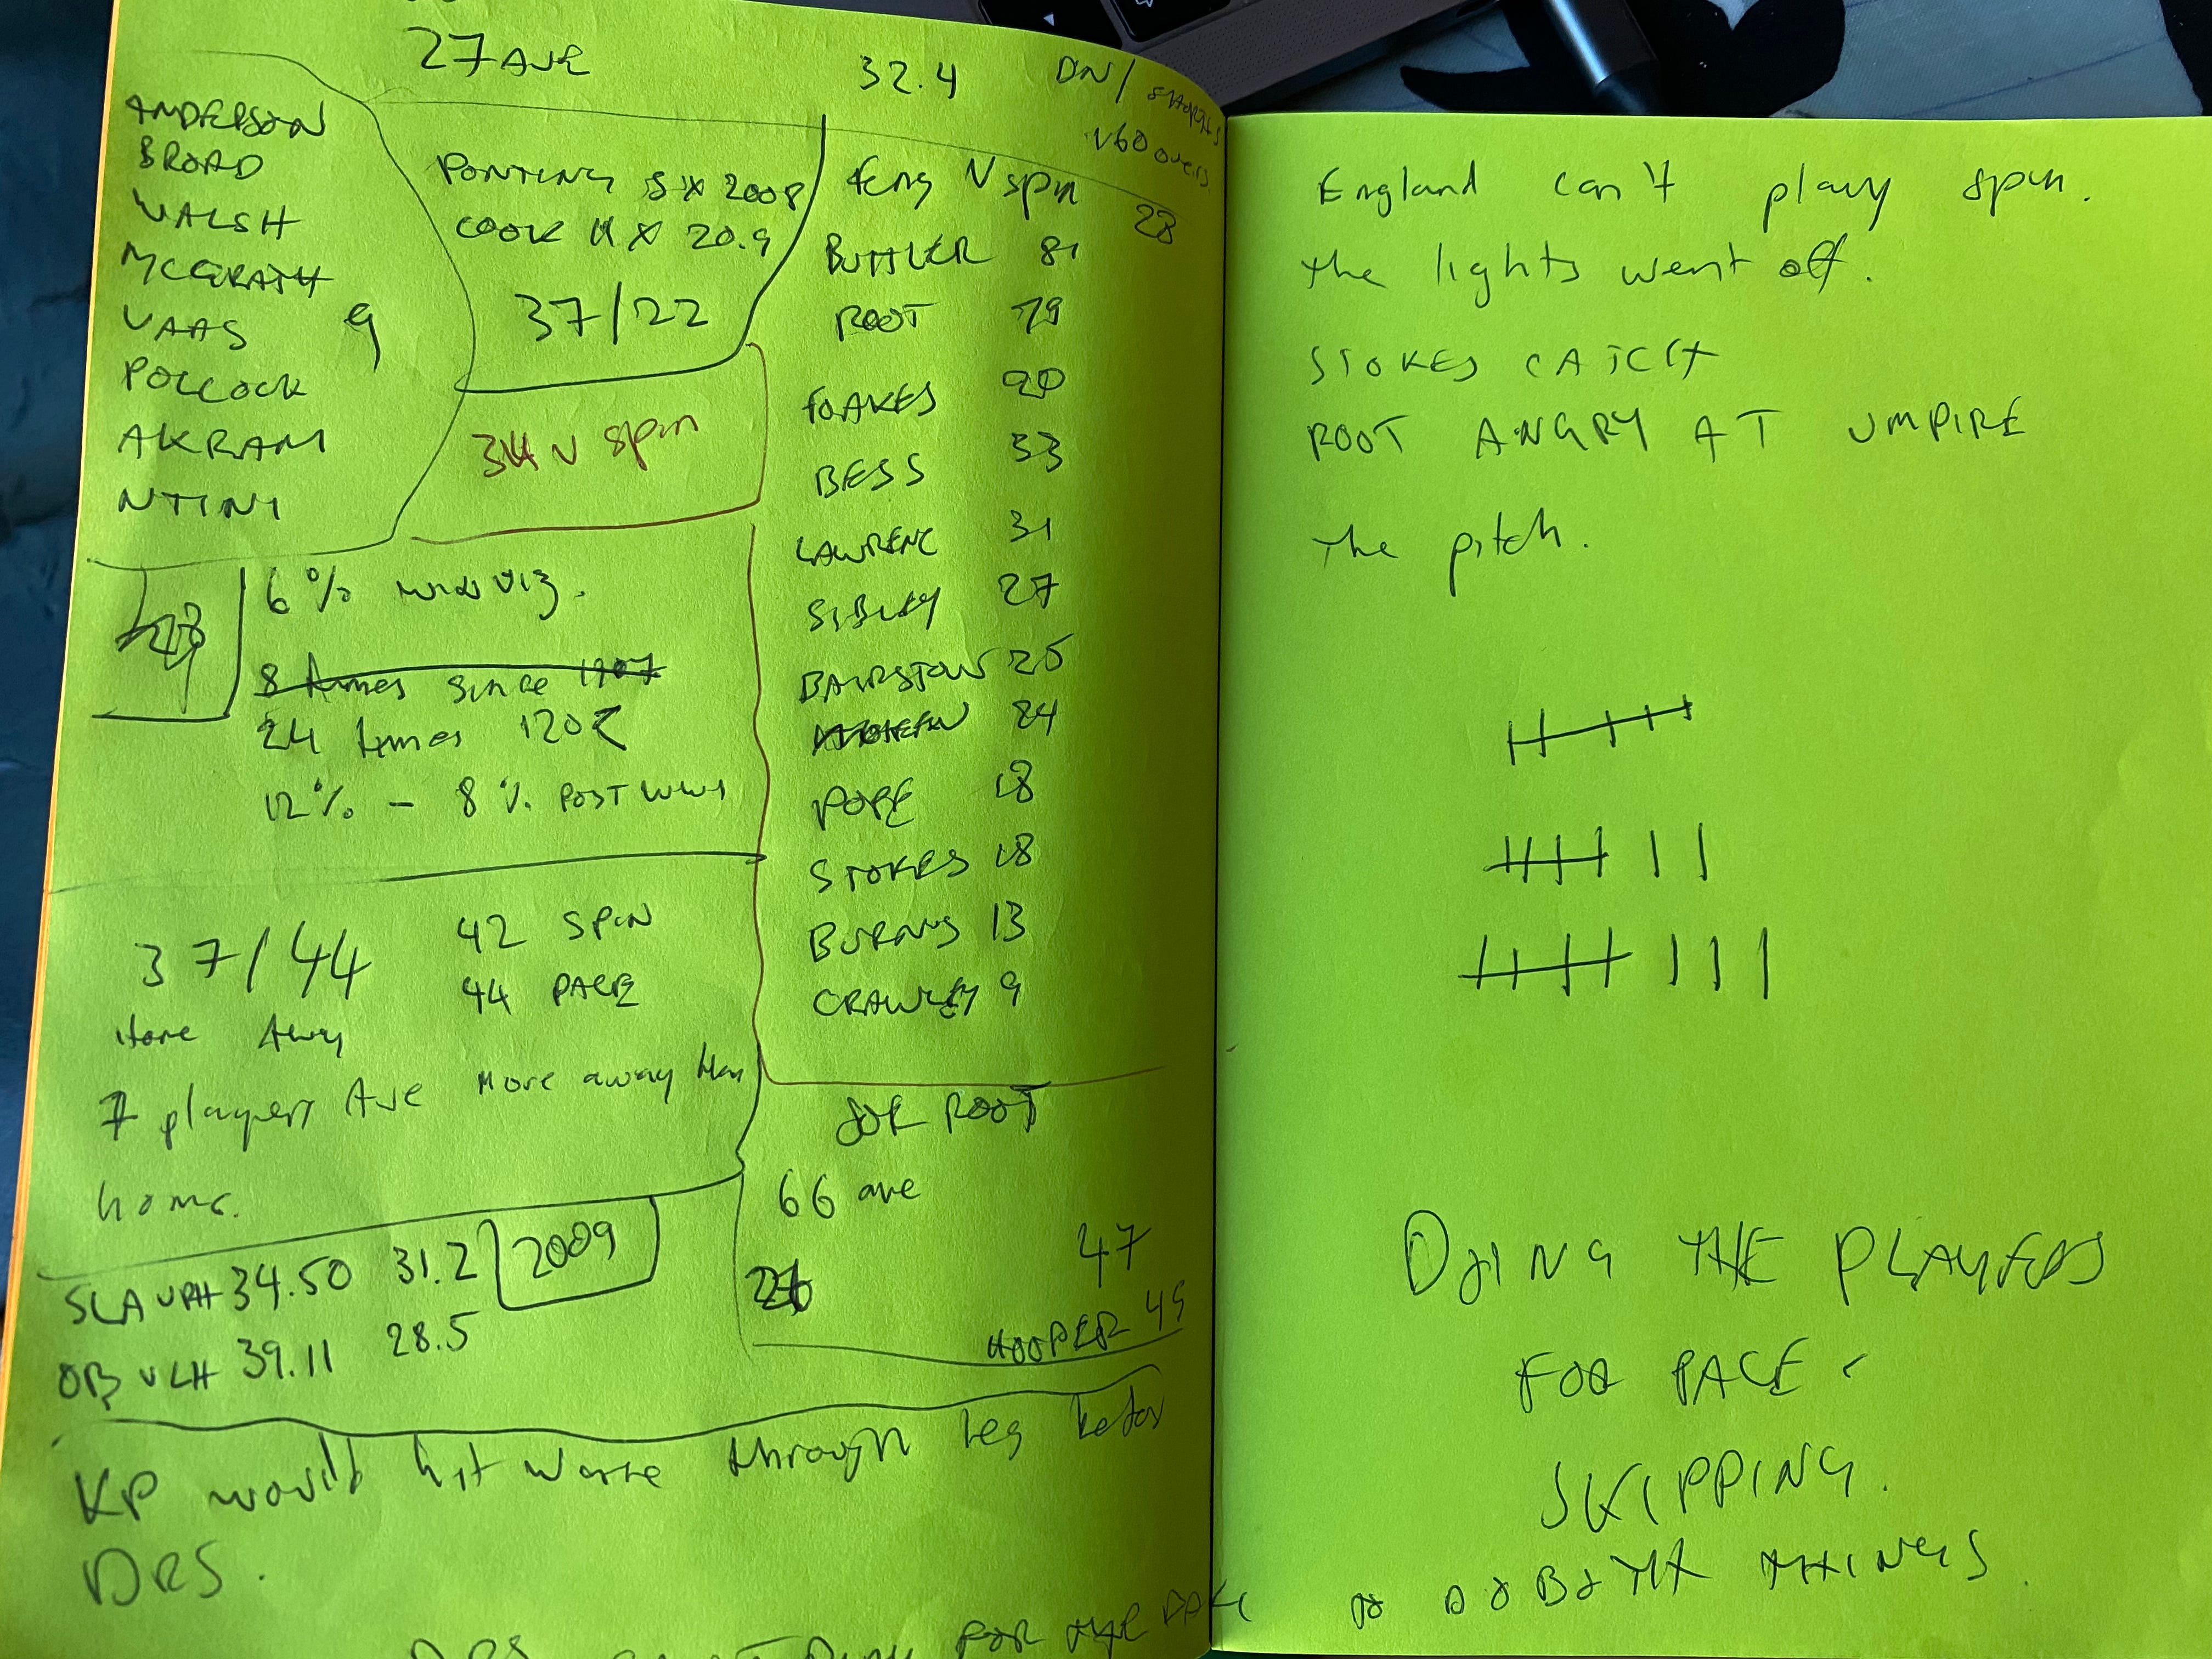 27 AVE
32.4 DN/
v60 overs
28
ANDERSON
BROAD
WALSH
MCGRATH
VAAS 9
POLLOCK
AKRAM
NTINI
PONTING 8 X 2008
COOK 11 X 20.9
37/22
34 v spin
Eng V spin
BUTTLER 81
ROOT 79
FOAKES 20
BESS 33
LAWRENC 31
SIBLEY 27
BAIRSTOW 25
24
POPE 18
STOKES 18
BURNS 13
CRAWLEY 9
6%
8 times since 1907
24 times 120
12% - 8% POST WW1
37/44
Home Away
42 SPIN
44 PACE
7 players Ave more away than
home.
SLA v RH 34.50 31.2 2009
OB v LH 39.11 28.5
JOE ROOT
66 ave
47
HOOPER 45
KP would hit Warne through leg
DRS.
FOR
England can't play spin.
The lights went off.
STOKES CATCH
ROOT ANGRY AT UMPIRE
The pitch.
THE PLAYERS
FOR PACE
SKIPPING.
BOTH THINGS.